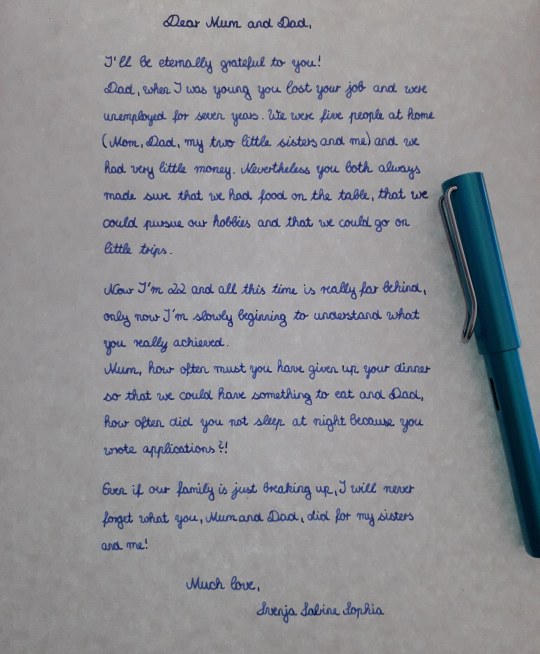 Dear Mum and Dad,
I'll be eternally grateful to you!
Dad, when I was young you lost your job and were
unemployed for seven years. We were five people at home
(Mom, Dad, my two little sisters and me) and we
had very little money. Nevertheless you both always
made sure that we had food on the table, that we
could pursue our hobbies and that we could go on
little trips.
Now I'm 22 and all this time is really far behind,
only now I'm slowly beginning to understand what
you really achieved.
Mum, how often must you have given up your dinner
so that we could have something to eat and Dad,
how often did you not sleep at night because you
wrote applications?!
Even if our family is just breaking up, I will never
forget what you, Mum and Dad, did for my sisters
and me!
Much love,
Svenja Sabine Sophia